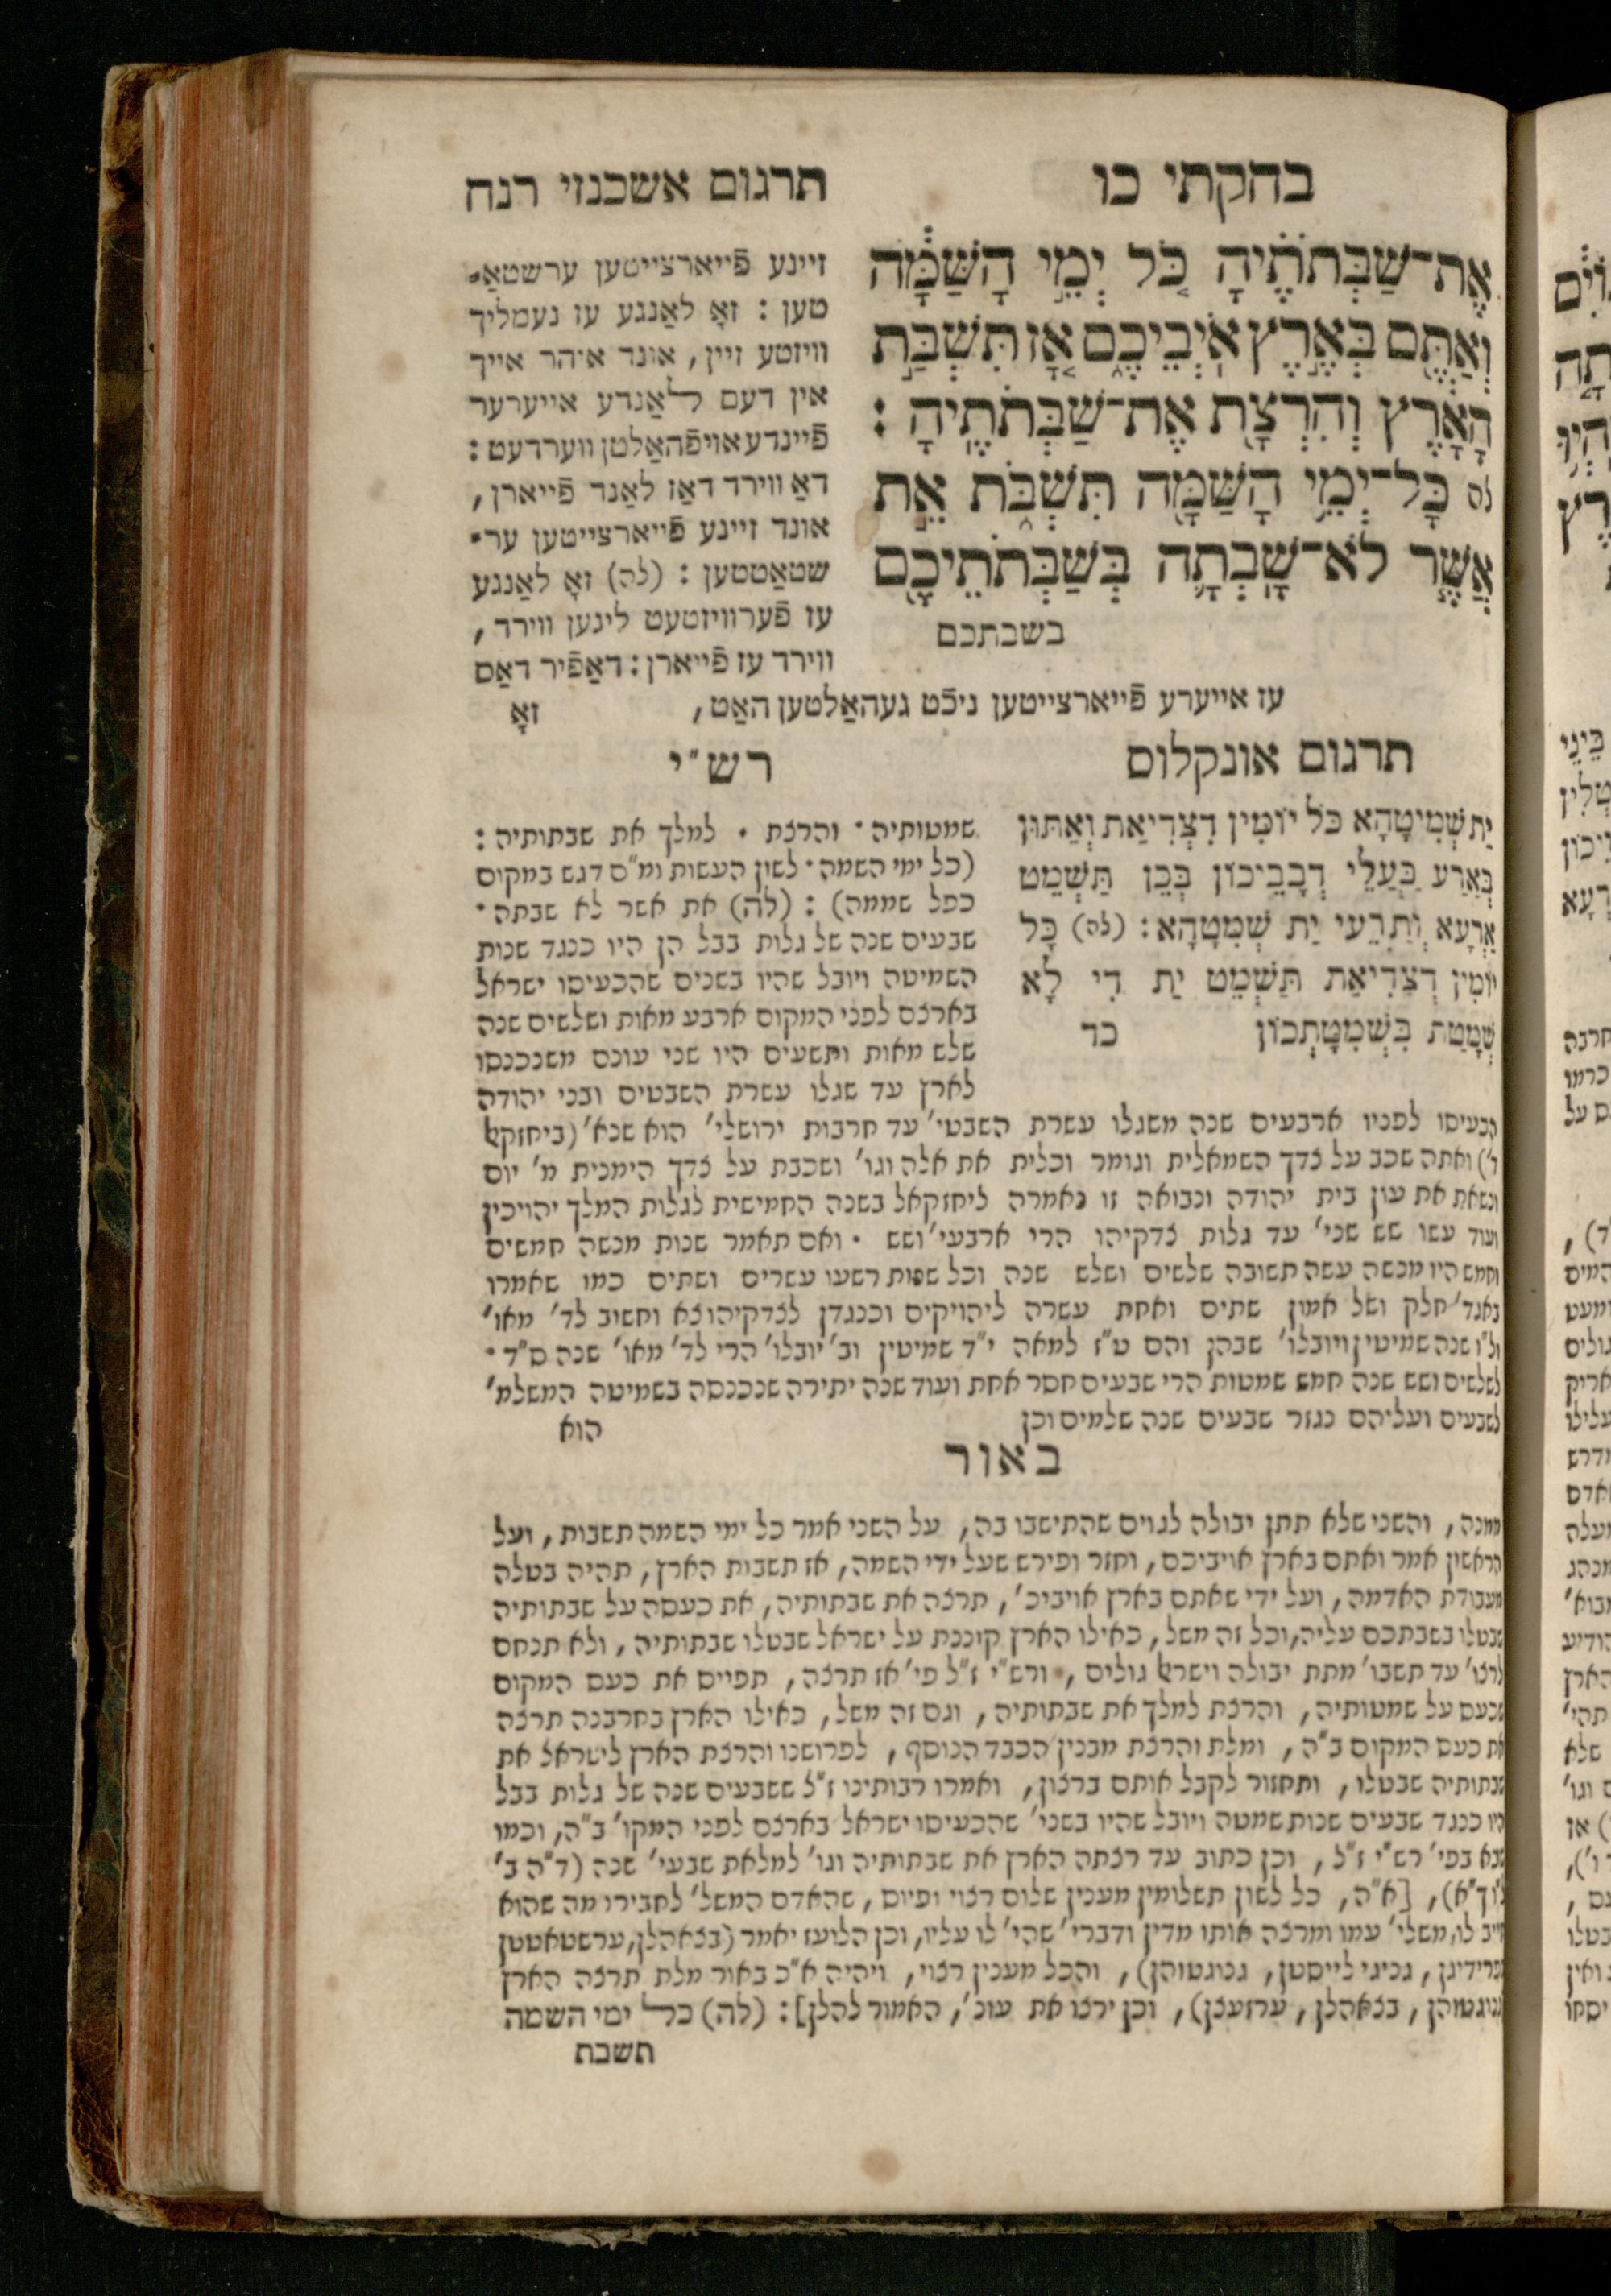 בחקתי כו
תרגום אשכנזי רנח
אֶת־שַׁבְּתֹתֶ֗יהָ כֹּ֚ל יְמֵ֣י הׇשַּׁמָּ֔ה
וְאַתֶּ֖ם בְּאֶ֣רֶץ אֹֽיְבֵיכֶ֑ם אָ֚ז תִּשְׁבַּ֣ת
הָאָ֔רֶץ וְהִרְצָ֖ת אֶת־שַׁבְּתֹתֶֽיהָ :
לה כׇּל־יְמֵ֥י הׇשַּׁמָּ֖ה תִּשְׁבֹּ֑ת אֵ֣ת
אֲשֶׁ֧ר לֹא־שָֽׁבְתָ֛ה בְּשַׁבְּתֹתֵיכֶ֖ם
בשבתכם
זיינע פֿייארצייטען ערשטאַ־
טען : זאָ לאַנגע עז נעמליך
וויזטע זיין, אונד איהר אייך
אין דעם לאַנדע אייערער
פֿיינדע אויפֿהאַלטן ווערדעט :
דאַ ווירד דאַז לאַנד פֿייארן,
אונד זיינע פֿייארצייטען ער־
שטאַטטען : (לה) זאָ לאַנגע
עז פֿערוויזטעט ליגען ווירד,
ווירד עז פֿייארן : דאַפֿיר דאַס
עז אייערע פֿייארצייטען ניכֿט געהאַלטען האַט, זאָ
תרגום אונקלוס
יַת שְׁמִיטָהָא כֹּל יוֹמִין דִצְדִיאַת וְאַתּוּן
בְּאַרַע בַּעֲלֵי דְבָבֵיכוֹן בְּכֵן תַּשְׁמֵט
אַרְעָא וְתִרְעֵי יַת שְׁמִטָהָא : (לה) כָּל
יוֹמִין דְצַדִיאַת תַּשְׁמֵט יַת דִי לָא
שְׁמָטַת בִּשְׁמִטָתְכוֹן כד
רש״י
שמטותיה · והרצת · למלך את שבתותיה :
(כל ימי השמה · לשון העשות ומ״ם דגש במקום
כפל שממה) : (לה) את אשר לא שבתה ·
שבעים שנה של גלות בבל הן היו כנגד שנות
השמיטה ויובל שהיו בשנים שהכעיסו ישראל
בארצם לפני המקום ארבע מאות ושלשים שנה
שלש מאות ותשעים היו שני עונם משנכנסו
לארץ עד שגלו עשרת השבטים ובני יהודה
הכעיסו לפניו ארבעים שנה משגלו עשרת השבטי׳ עד חרבות ירושלי׳ הוא שנא׳ (ביחזקאל
ד׳) ואתה שכב על צדך השמאלית וגומר וכלית את אלה וגו׳ ושכבת על צדך הימנית מ׳ יום
ונשאת את עון בית יהודה ונבואה זו נאמרה ליחזקאל בשנה החמישית לגלות המלך יהויכין
ועוד עשו שש שני׳ עד גלות צדקיהו הרי ארבעי׳ ושש · ואם תאמר שנות מנשה חמשים
וחמש היו מנשה עשה תשובה שלשים ושלש שנה וכל שנות רשעו עשרים ושתים כמו שאמרו
באגד׳ חלק ושל אמון שתים ואחת עשרה ליהויקים וכנגדן לצדקיהו צא וחשיב לד׳ מאו׳
ול״ו שנה שמיטין ויובלו׳ שבהן והם ט״ז למאה י״ד שמיטין וב׳ יובלו׳ הרי לד׳ מאו׳ שנה ס״ד ·
לשלשים ושש שנה חמש שמטות הרי שבעים חסר אחת ועוד שנה יתירה שנכנסה בשמיטה המשלמ׳
לשבעים ועליהם נגזר שבעים שנה שלמים וכן הוא
באור
ממנה, והשני שלא תתן יבולה לגוים שהתישבו בה, על השני אמר כל ימי השמה תשבות, ועל
הראשון אמר ואתם בארץ אויביכם, וחזר ופירש שעל ידי השמה, אז תשבות הארץ, תהיה בטלה
מעבודת האדמה, ועל ידי שאתם בארץ אויביכ׳, תרצה את שבתותיה, את כעסה על שבתותיה
שבטלו בשבתכם עליה, וכל זה משל, כאילו הארץ קוננת על ישראל שבטלו שבתותיה, ולא תנחם
לרצו׳ עד תשבו׳ מתת יבולה וישראל גולים, ורש״י ז״ל פי׳ אז תרצה, תפייס את כעס המקום
שכעס על שמטותיה, והרצת למלך את שבתותיה, וגם זה משל, כאילו הארץ בחרבנה תרצה
את כעס המקום ב״ה, ומלת והרצת מבנין הכבד הנוסף, לפרושנו והרצת הארץ לישראל את
שבתותיה שבטלו, ותחזור לקבל אותם ברצון, ואמרו רבותינו ז״ל ששבעים שנה של גלות בבל
היו כנגד שבעים שנות שמטה ויובל שהיו בשני׳ שהכעיסו ישראל בארצם לפני המקו׳ ב״ה, וכמו
שבא בפי׳ רש״י ז״ל, וכן כתוב עד רצתה הארץ את שבתותיה וגו׳ למלאת שבעי׳ שנה (ד״ה ב׳
ל״ו כ״א), [א״ה, כל לשון תשלומין מענין שלום רצוי ופיוס, שהאדם המשל׳ לחבירו מה שהוא
חייב לו, משלי׳ עמו ומרצה אותו מדין ודברי׳ שהי׳ לו עליו, וכן הלועז יאמר (בצאהלן, ערשטאטטן
בפרידיגן, גניגי לייסטן, גנוגטוהן), והכל מענין רצוי, ויהיה א״כ באור מלת תרצה הארץ
(גנוגטוהן, בצאהלן, ערזעצן), וכן ירצו את עונ׳, האמור להלן] : (לה) כל ימי השמה
תשבת